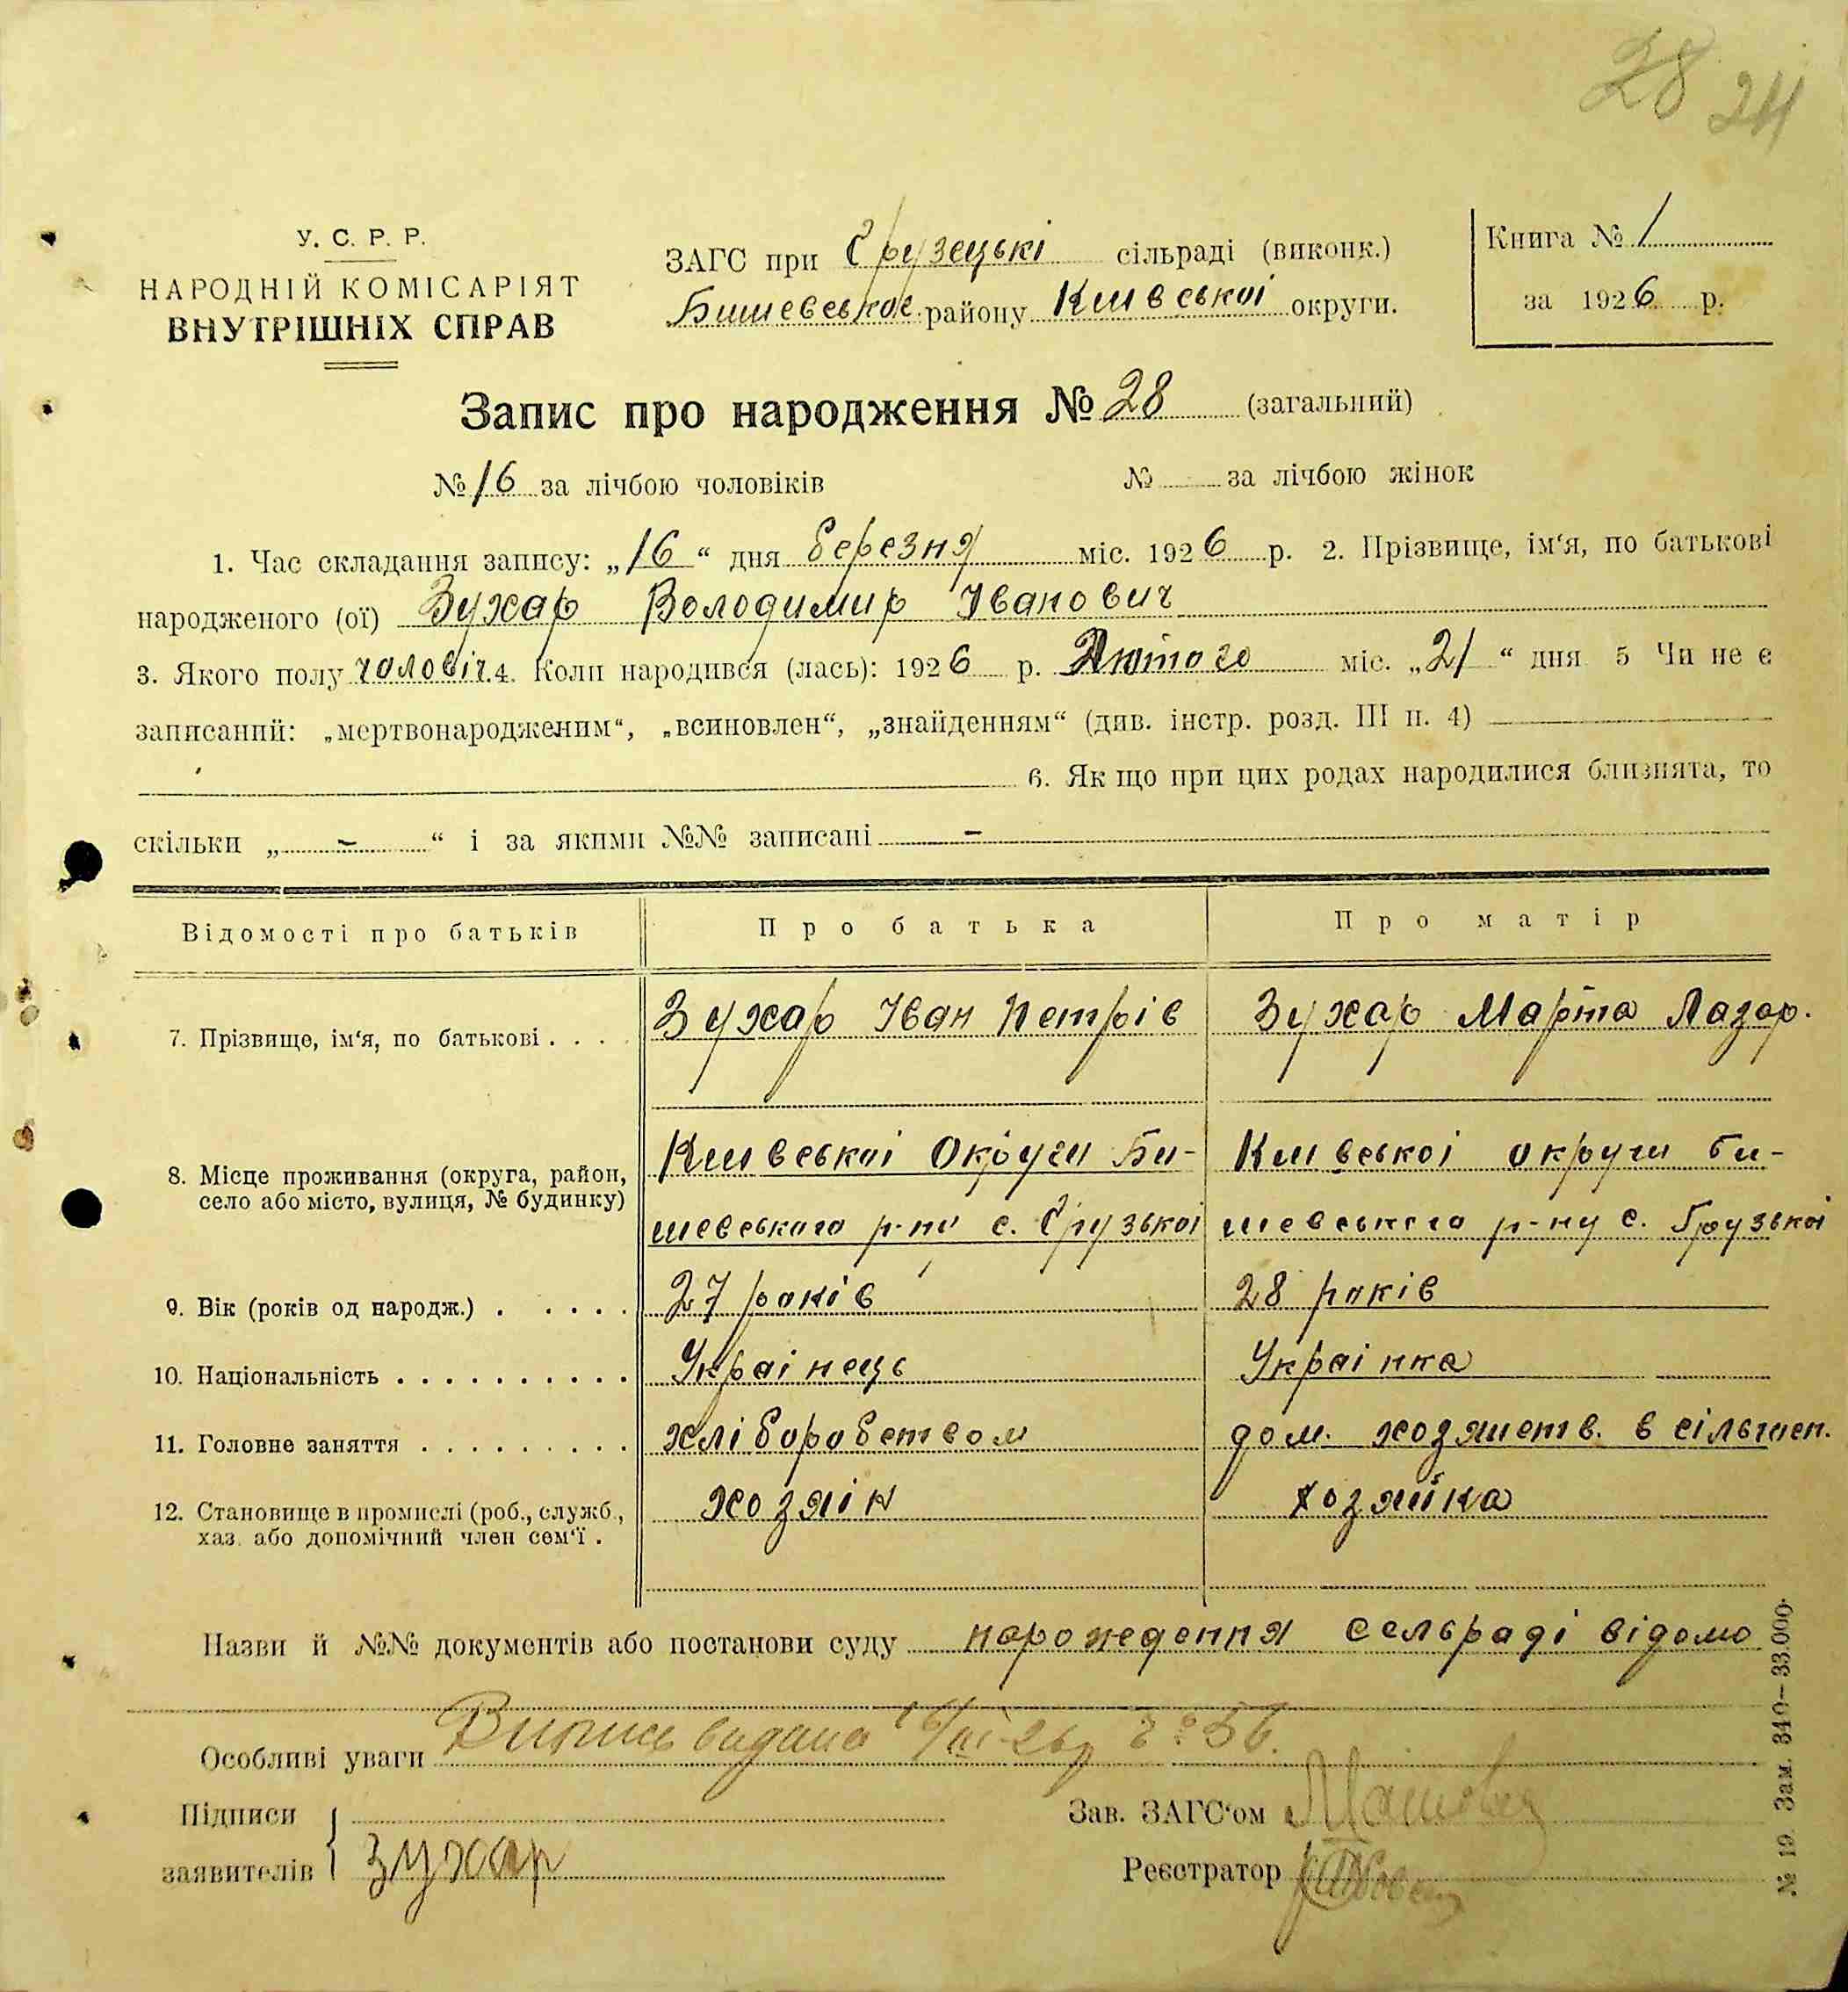 28 24
У. С. Р. Р.
НАРОДНІЙ КОМІСАРІЯТ
ВНУТРІШНІХ СПРАВ
ЗАГС при Грузецькі сільраді (виконк.)
Бишевської району Київської округи.
Книга № 1
за 1926 р.
Запис про народження № 28 (загальний)
№ 16 за лічбою чоловіків № за лічбою жінок
1. Час складання запису: „16“ дня березня міс. 1926 р. 2. Прізвище, ім‘я, по батькові
народженого (ої) Зухар Володимир Іванович
3. Якого полу чоловіч. 4. Коли народився (лась): 1926 р. Лютого міс. „21“ дня 5 Чи не є
записаний: „мертвонародженим“, „всиновлен“, „знайденням“ (див. інстр. розд. III п. 4)
6. Як що при цих родах народилися близнята, то
скільки „ - “ і за якими №№ записані -
Відомості про батьків Про батька Про матір
7. Прізвище, ім‘я, по батькові . . . . Зухар Іван Петрів Зухар Марта Лазар.
8. Місце проживання (округа, район, село або місто, вулиця, № будинку)
Київської Округи Би-
шевського р-ну с. Грузької
Київської округи би-
шевського р-ну с. Грузької
9. Вік (років од народж.) . . . . . 27 років 28 років
10. Національність . . . . . . . . . . Українець Українка
11. Головне заняття . . . . . . . . . хліборобством дом. хозяиств. в сільськ.
12. Становище в промислі (роб., служб., хозяін хозяйка
хаз. або допомічний член сем‘ї .
Назви й №№ документів або постанови суду нарождення сельраді відомо
Особливі уваги Випись видана 16/III-26р № 56.
Підписи
заявителів Зухар
Зав. ЗАГС‘ом
Реєстратор
№ 19. Зам. 340—33.000.